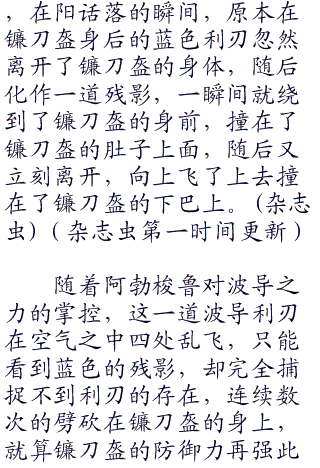 ，在阳话落的瞬间，原本在
镰刀盔身后的蓝色利刃忽然
离开了镰刀盔的身体，随后
化作一道残影，一瞬间就绕
到了镰刀盔的身前，撞在了
镰刀盔的肚子上面，随后又
立刻离开，向上飞了上去撞
在了镰刀盔的下巴上。(杂志
虫)(杂志虫第一时间更新)
随着阿勃梭鲁对波导之
力的掌控，这一道波导利刃
在空气之中四处乱飞，只能
看到蓝色的残影，却完全捕
捉不到利刃的存在，连续数
次的劈砍在镰刀盔的身上，
就算镰刀盔的防御力再强此